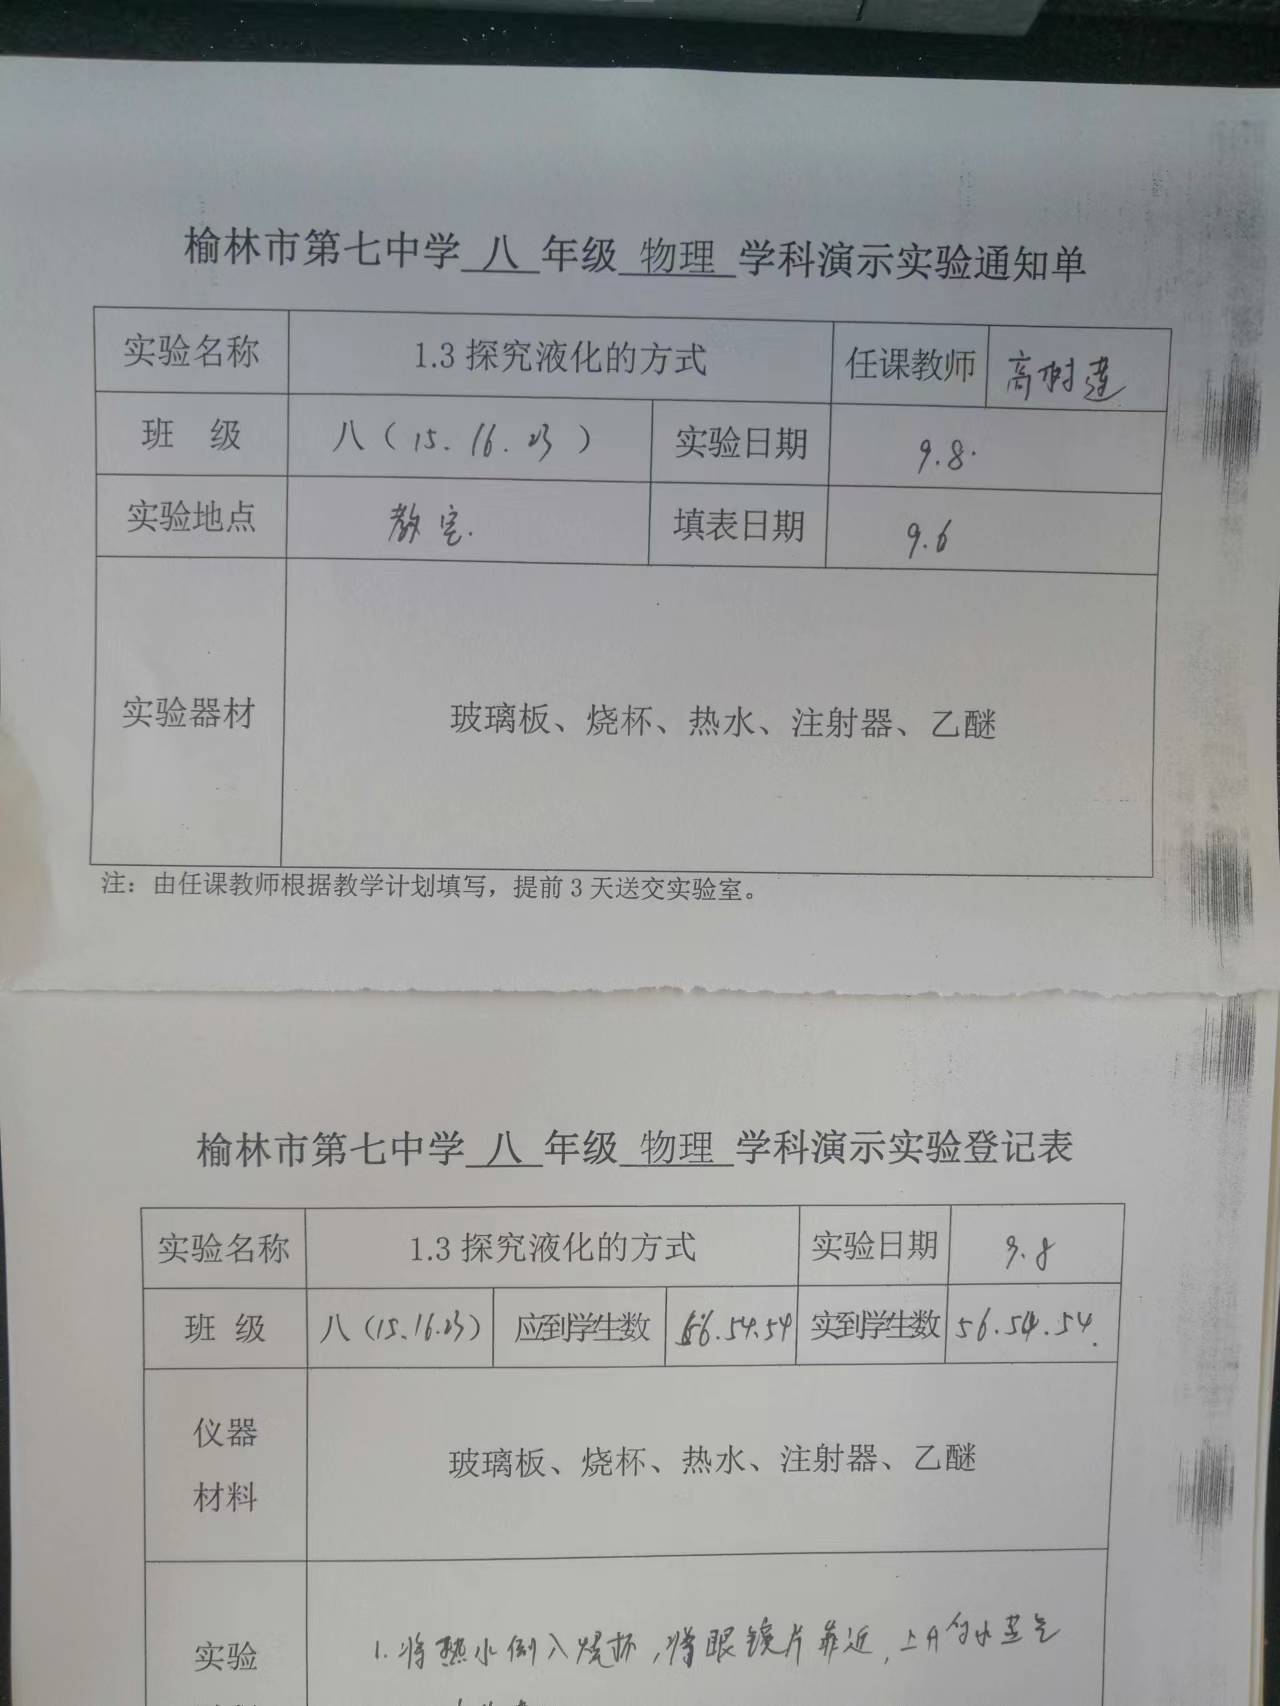 榆林市第七中学 八 年级 物理 学科演示实验通知单
实验名称 1.3 探究液化的方式 任课教师 高树莲
班 级 八（15. 16. 23） 实验日期 9.8.
实验地点 教室. 填表日期 9.6
实验器材 玻璃板、烧杯、热水、注射器、乙醚
注：由任课教师根据教学计划填写，提前 3 天送交实验室。
榆林市第七中学 八 年级 物理 学科演示实验登记表
实验名称 1.3 探究液化的方式 实验日期 9.8
班 级 八（15.16.23） 应到学生数 56.54.54 实到学生数 56.54.54.
仪器
材料
玻璃板、烧杯、热水、注射器、乙醚
实验
1.将热水倒入烧杯,将眼镜片靠近,上升的水蒸气